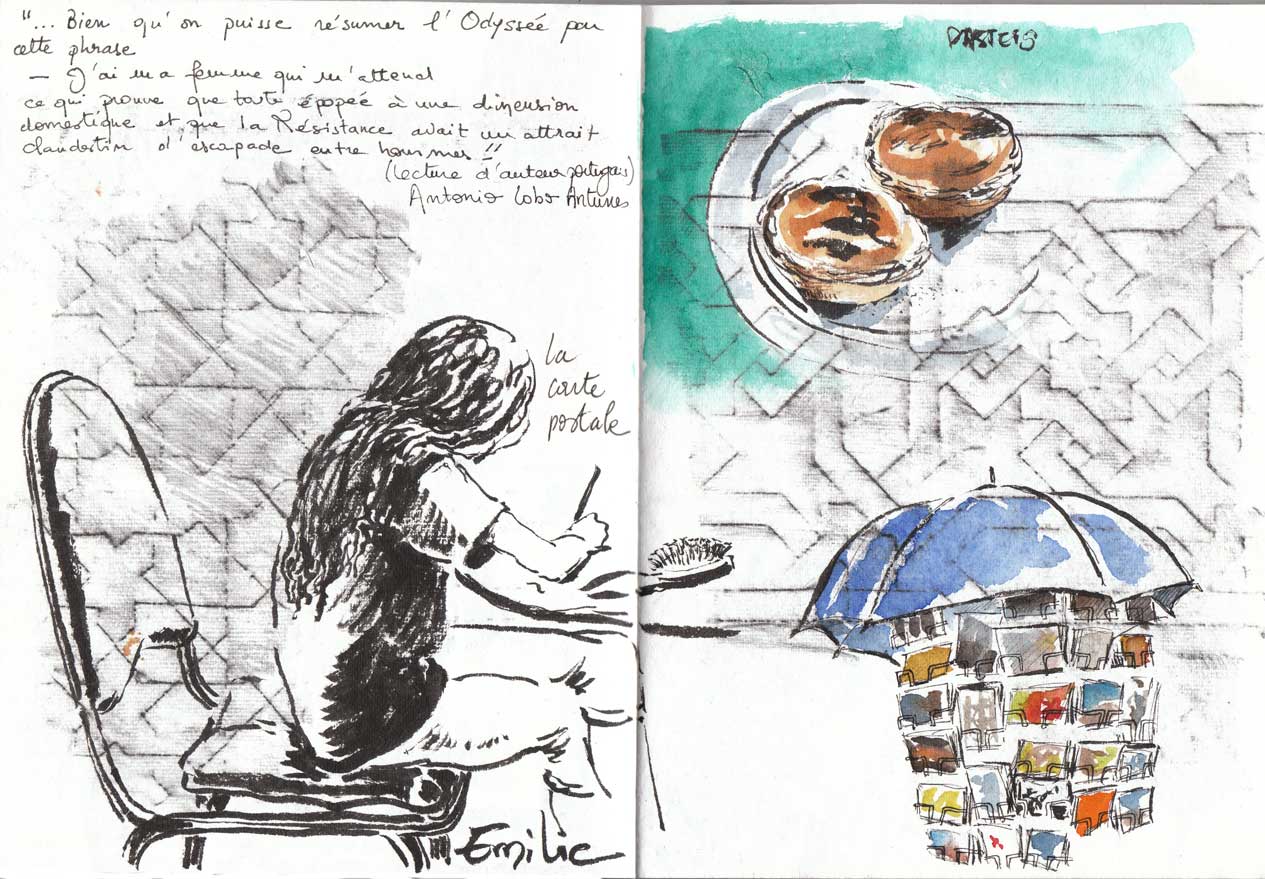 "... Bien qu'on puisse résumer l'Odyssée par
cette phrase
— J'ai ma femme qui m'attend
ce qui prouve que toute épopée à une dimension
domestique et que la Résistance avait un attrait
clandestin d'escapade entre hommes"
(lecture d'auteur portugais)
Antonio Lobo Antunes
la
carte
postale
Emilie
PASTEIS